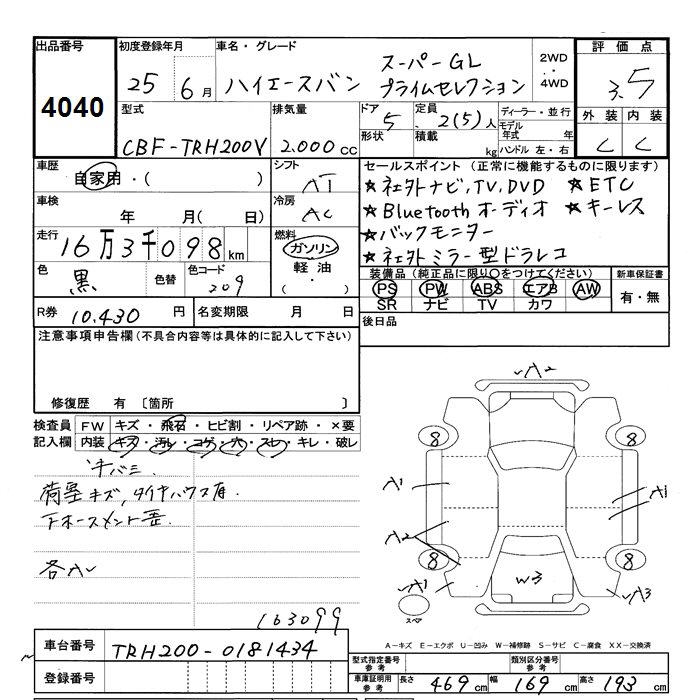 出品番号 初度登録年月 車名・グレード 評価点
4040 25年 6月 ハイエースバン スーパーGL プライムセレクション 2WD ・ ・ 4WD 3.5
型式 排気量 ドア 定員 ディーラー・並行 外装 内装
CBF-TRH200V 2.000cc 5 2(5)人 モデル年式 年 C C
形状 積載 kg ハンドル 左・右
車歴 自家用・( ) シフト AT セールスポイント(正常に機能するものに限ります)
★社外ナビ,TV,DVD ★ETC
車検 年 月( 日) 冷房 AC ★Bluetoothオーディオ ★キーレス
走行 16万3千098km 燃料 ガソリン ★バックモニター
軽油 ・( ) ★社外ミラー型ドラレコ
色 黒 色替 色コード 209 装備品(純正品に限り○をつけてください) 新車保証書
PS PW ABS エアB AW 有・無
SR ナビ TV カワ
R券 10.430円 名変期限 月 日 後日品
注意事項申告欄(不具合内容等は具体的に記入して下さい)
修復歴 有 〔箇所 〕
検査員 FW キズ・飛石・ヒビ割・リペア跡・×要
記入欄 内装 キズ・汚レ・コゲ・穴・スレ・キレ・破レ
荷室キズ,タイヤハウス有.
各AL
163099
A2
8 8
A1 A1
A2
8 8
A1 W3 A3
スペア
A-キズ E-エクボ U-凹み W-補修跡 S-サビ C-腐食 XX-交換済
車台番号 TRH200-0181434
登録番号
型式指定番号 参考 類別区分番号 参考
車庫証明用 参考 長さ 469cm 幅 169cm 高さ 193cm